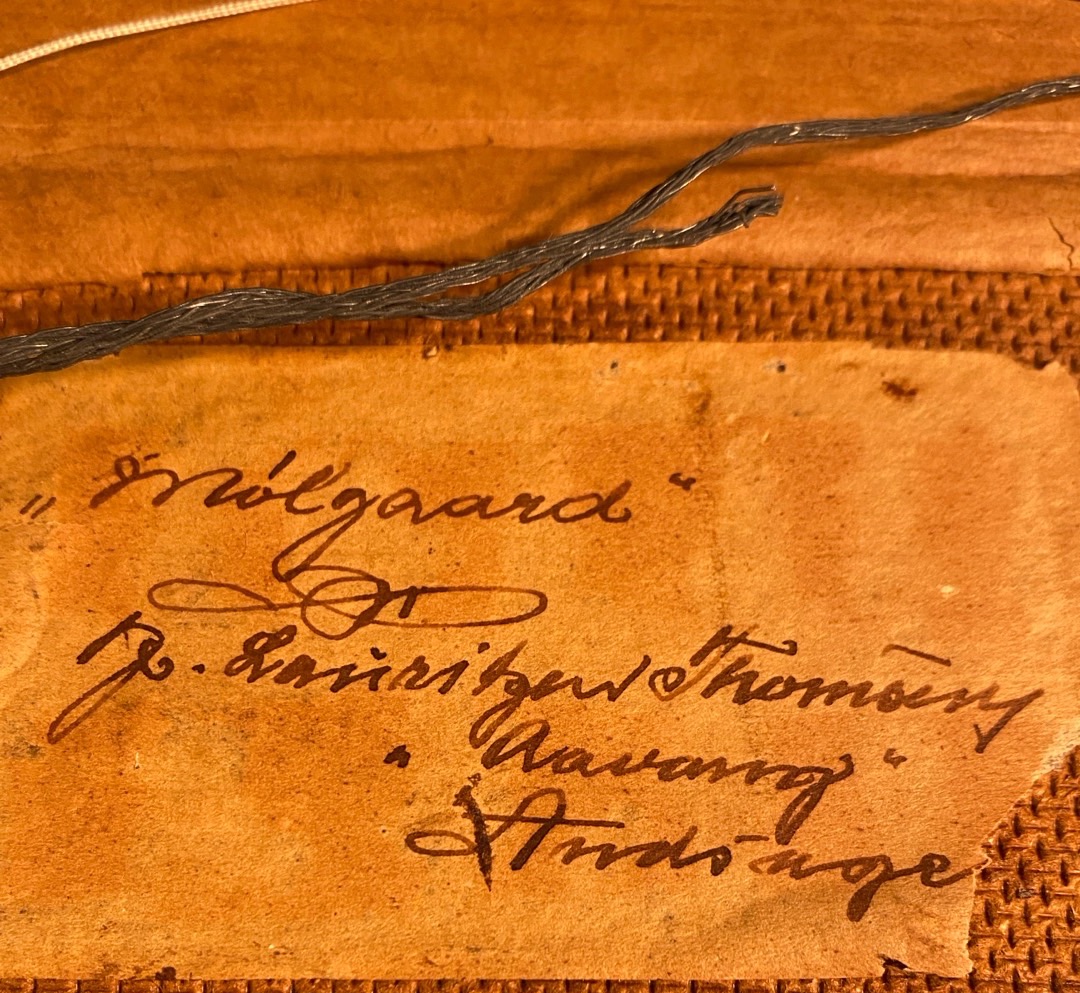 „Mólgaard“
P. Lauritzen Thomsen
"Aavang"
Andsager